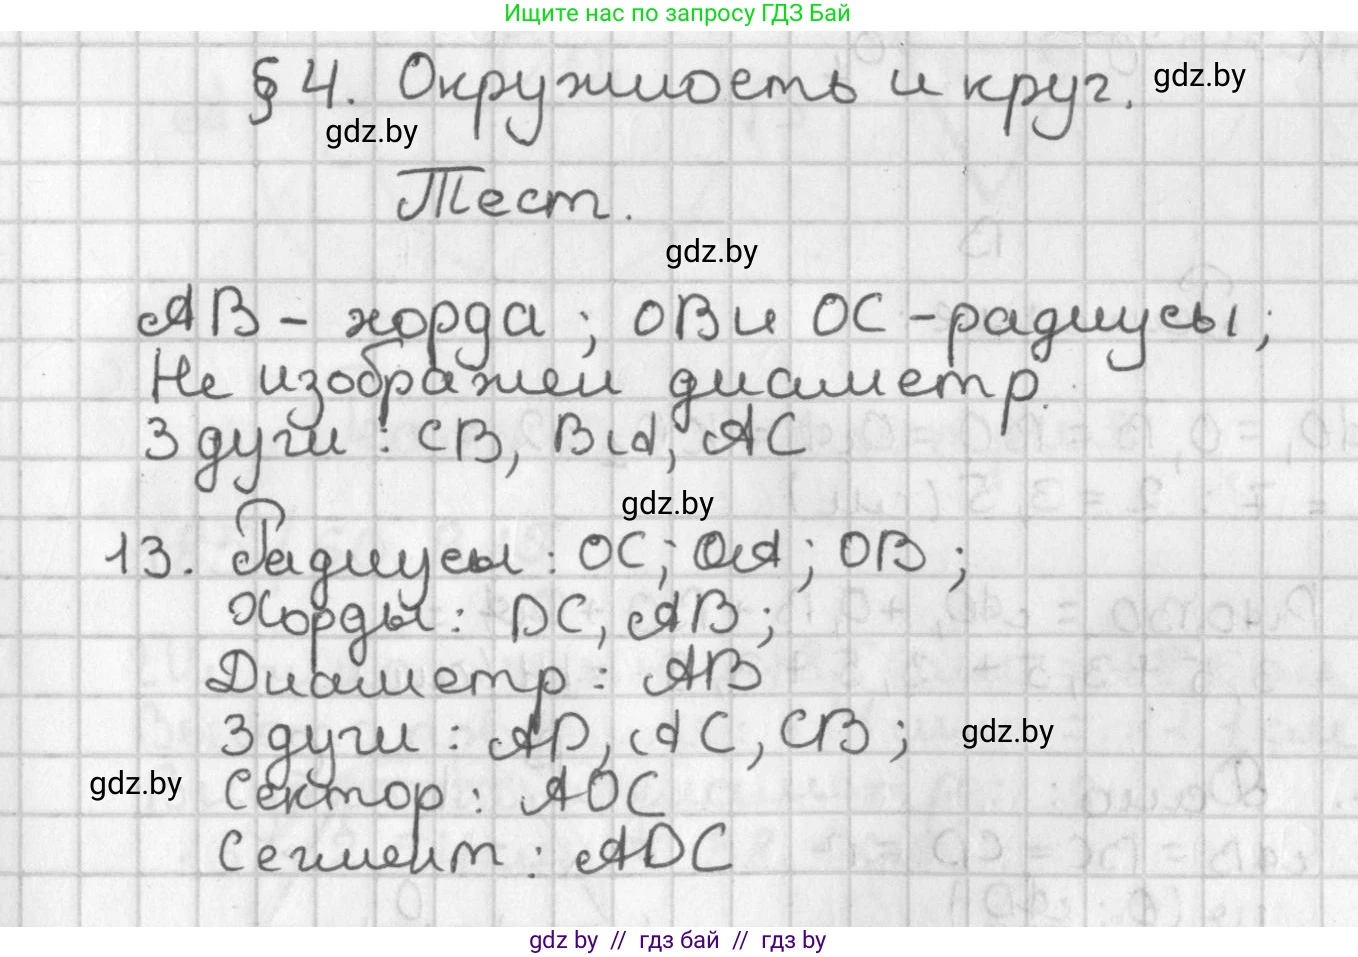 Ищите нас по запросу ГДЗ Бай
§ 4. Окружность и круг.
gdz.by
gdz.by
Тест.
gdz.by
AB – хорда; OB и OC – радиусы;
Не изображен диаметр.
3 дуги: CB, BA, AC
gdz.by
13. Радиусы: OC; OA; OB;
Хорды: DC, AB;
Диаметр: AB
3 дуги: AD, AC, CB;
gdz.by
gdz.by
Сектор: AOC
Сегмент: ADC
gdz by // гдз бай // гдз by